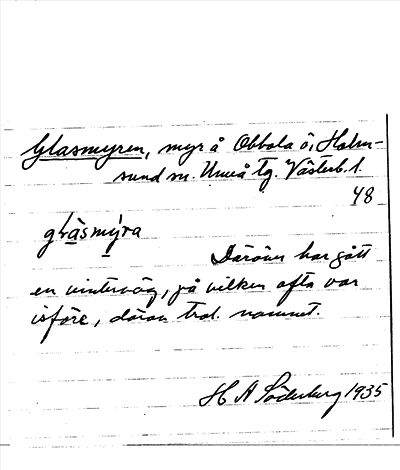 Glasmyren, myr å Obbola ö, Holm-
sund sn. Umeå tg. Västerb. l.
48
glåsmýra
Däröver har gått
en vinterväg, på vilken ofta var
isföre, därav trol. namnet.
H A Söderberg 1935